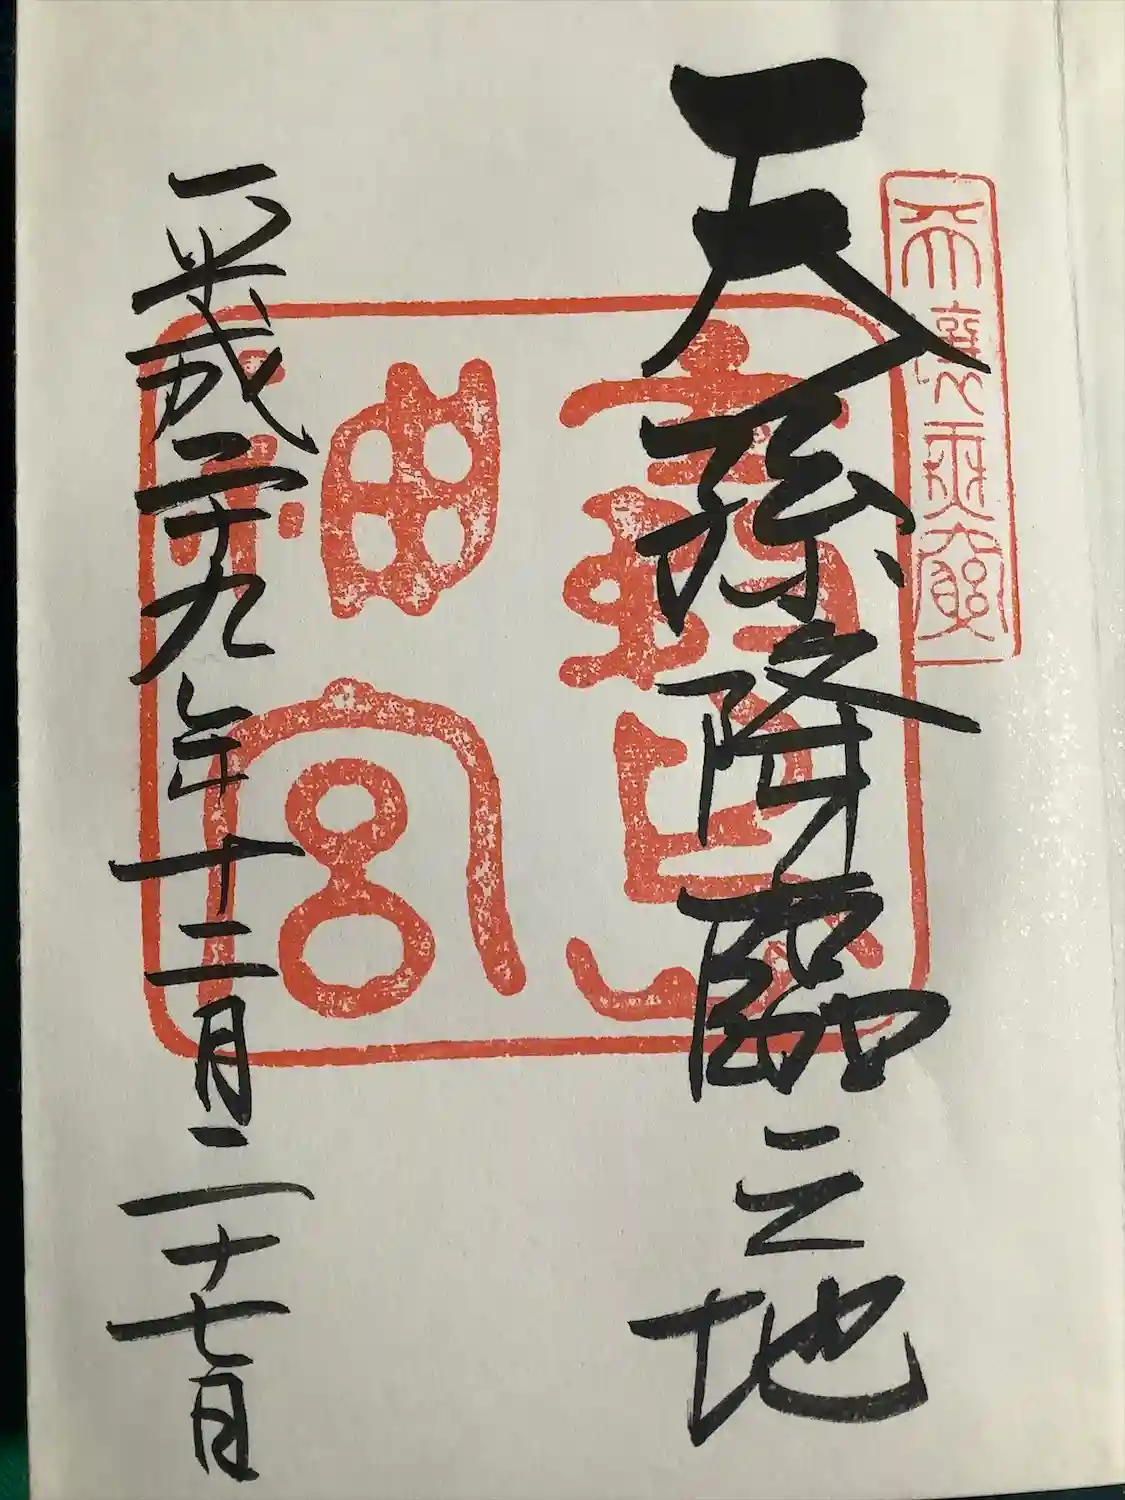 天孫降臨之地
霧島神宮
平成二十九年十二月二十七日